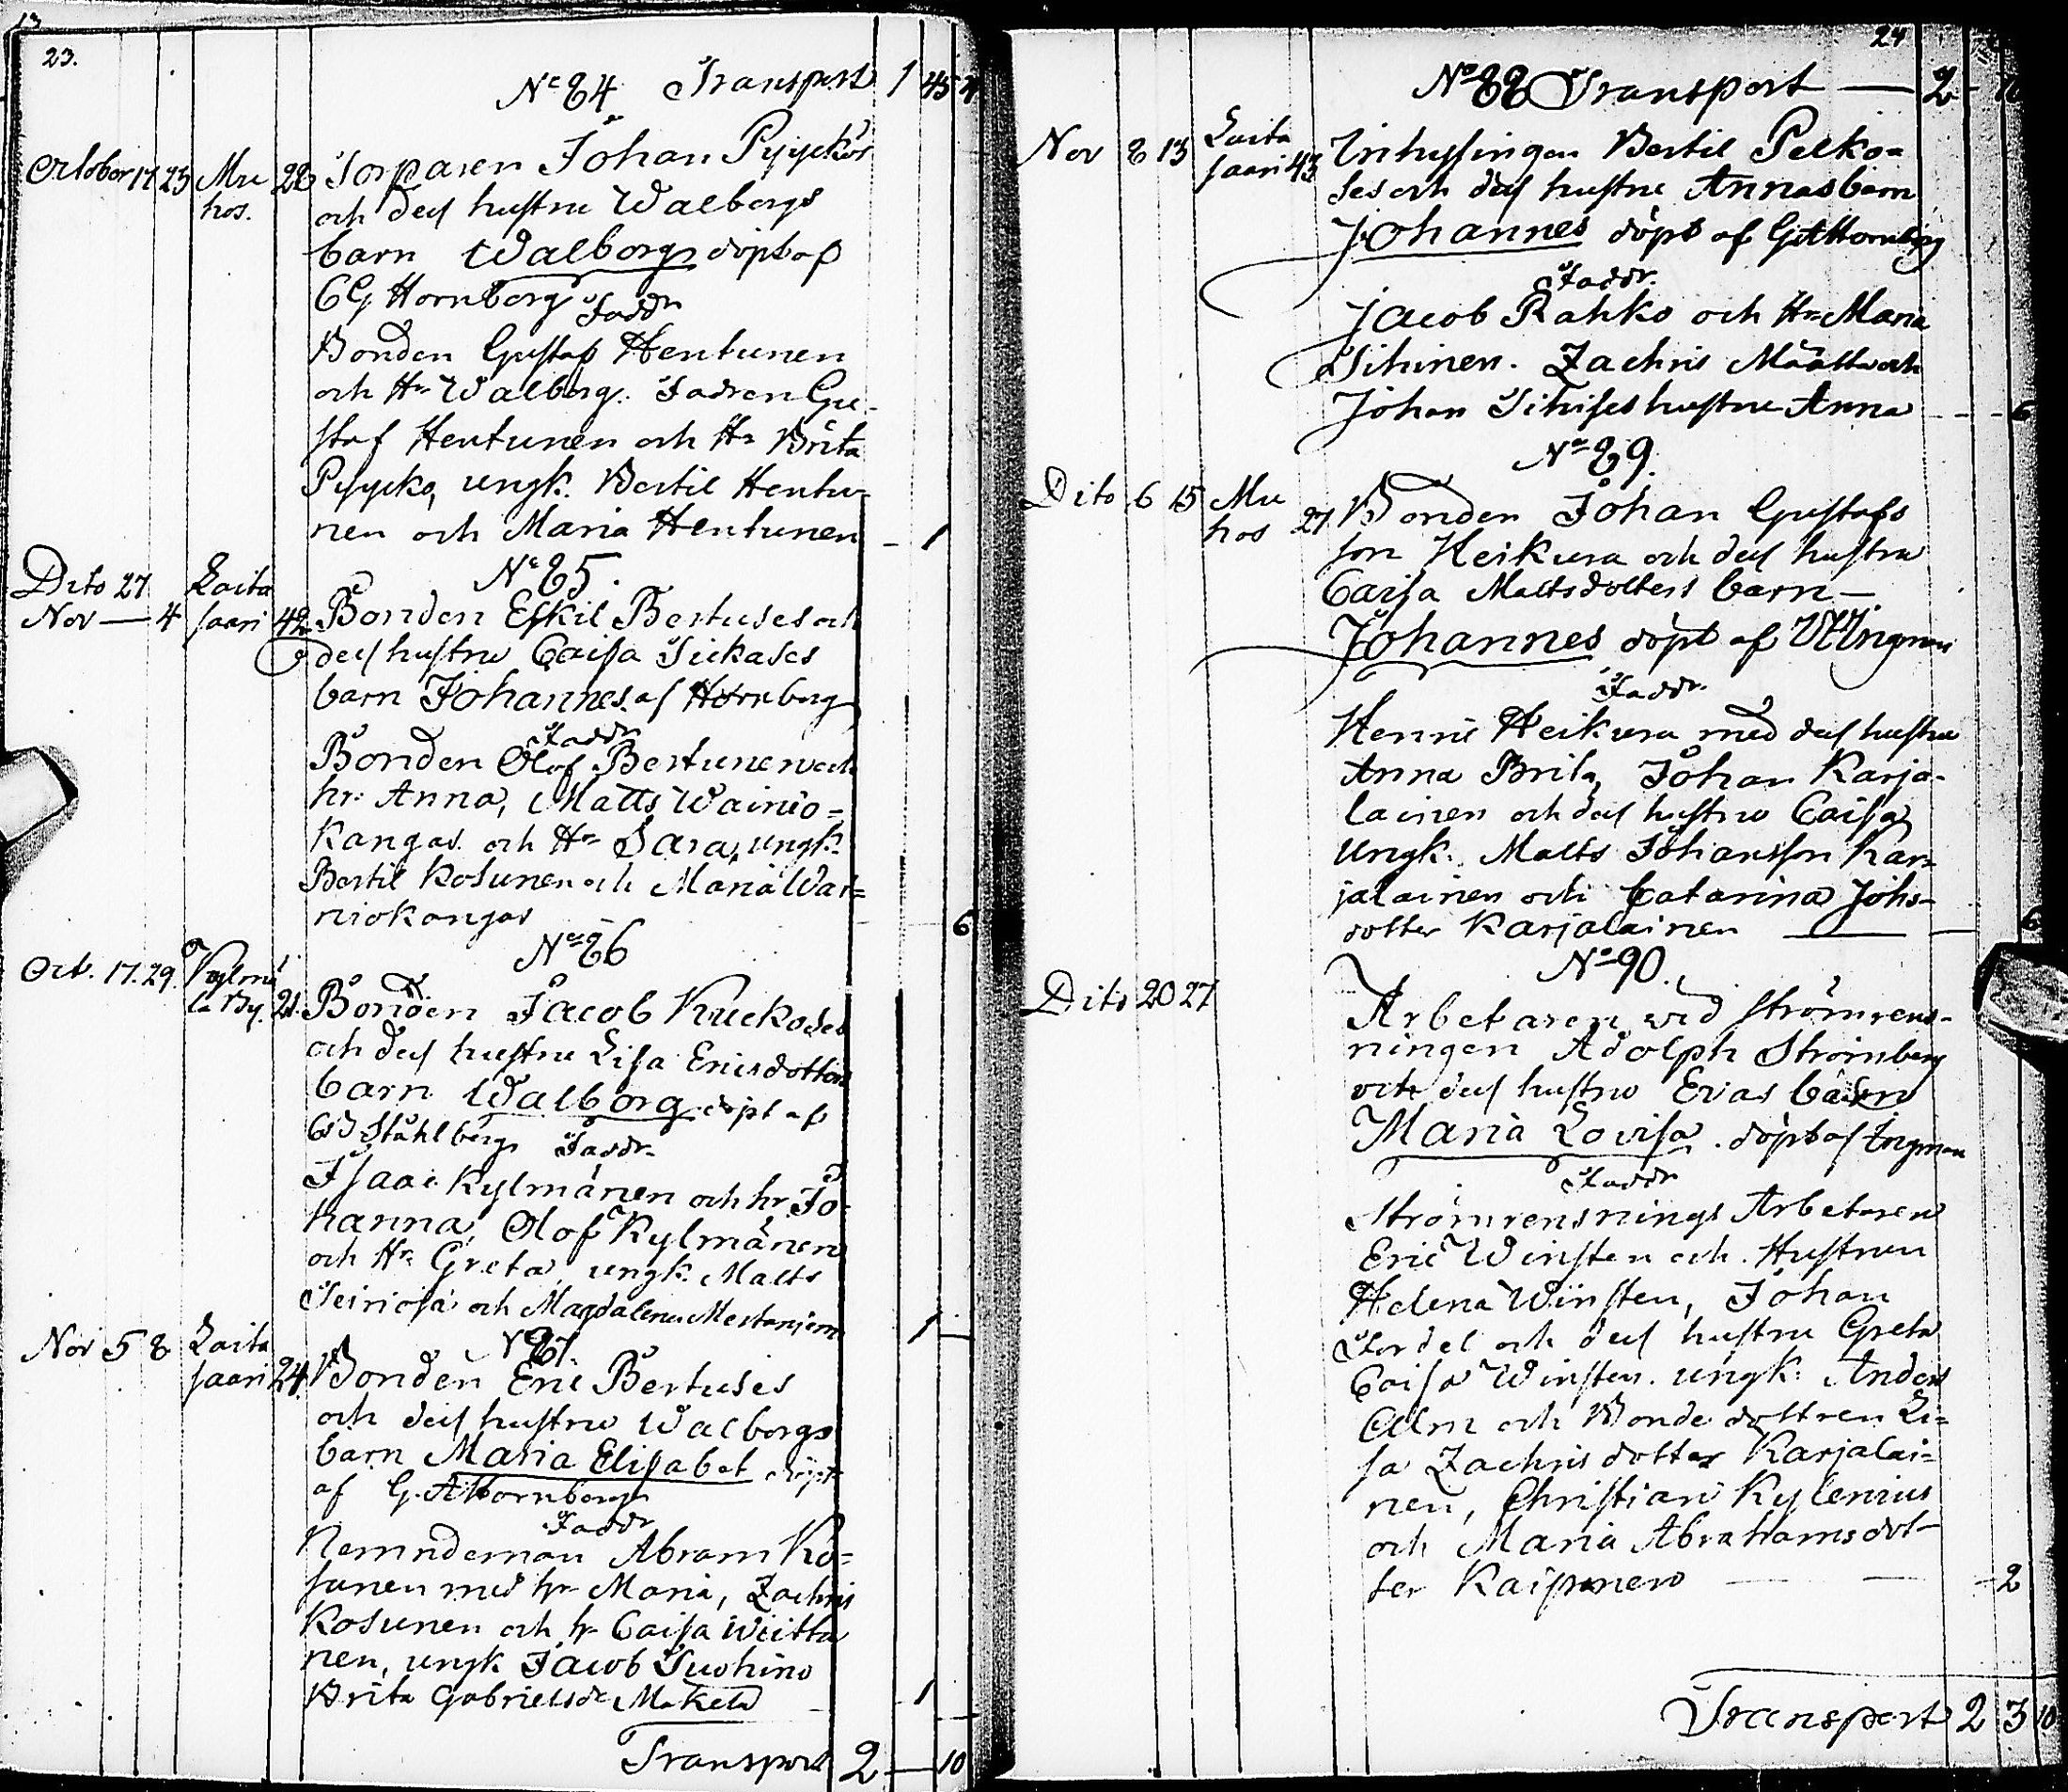 13
23.
Nº 84 Transport 1 45 4
October 17 23 Mu 28 Torparen Johan Pyyckös
hos. och dess hustru Walborgs
barn Walborg döpt af
C G Hornborg Faddr
Bonden Gustaf Hentunen
och Hr Walborg. Fadren Gu-
staf Hentunen och Hr Brita
Pyycko, ungk. Bertil Hentu-
nen och Maria Hentunen - 1
Nº 85.
Dito 27 Laita
Nov — 4 saari 42 Bonden Eskil Bertuses och
dess hustru Caisa Sickases
barn Johannes af Hornborg
Faddr
Bonden Olof Bertunen och
hr: Anna, Matts Wainio=
kangas och Hr Sara, ungk:
Bertil Kosunen och Maria Wai=
niokangas 6
Nº 86
Oct. 17. 29. Kylmä
lä By. 21. Bonden Jacob Kuckoses
och dess hustru Lisa Ericsdotters
barn Walborg döpt af
Ståhlberg Faddr.
Isaac Kylmänen och hr. Jo-
hanna, Olof Kylmänen
och Hr Greta, ungk. Matts
och Magdalena 1
Nº 87
Nov 5 8 Laita
saari 24 Bonden Eric Bertuses
och dess hustru Walborgs
barn Maria Elisabet döpt
af G. A Hornborg
Faddr
Nemndeman Abram Ko=
sunen med hr Maria, Zachris
Kosunen och hr Caisa Wiitta
nen, ungk Jacob Suohino
Brita Gabrielsdr Makela 1
Transport 2 — 10
24
Nº 88 Transport — 2 - 10
Nov 8 13 Laita
saari 43 Inhysingen Bertil Pelko=
ses och dess hustru Annas barn
Johannes döpt af G A Hornborg
Faddr.
Jacob Rahko och Hr Maria
Tihinen. Zachris Määtta och
Johan Tihises hustru Anna - - - 6
Nº 89.
Dito 6 15 Mu
hos 27. Bonden Johan Gustafs
son Heikura och dess hustru
Caisa Mattsdotters barn —
Johannes döpt af Ingman
Faddr.
Henric Heikura med dess hustru
Anna Brita, Johan Karja-
lainen och dess hustru Caisa
Ungk. Matts Johansson Kar=
jalainen och Catarina Johs-
dotter Karjalainen — 6
Nº 90.
Dito 20 27 Arbetaren wid strömrens-
ningen Adolph Strömberg
och dess hustru Evas barn
Maria Lovisa. döpt af Ingman
Faddr
Strömrensnings Arbetaren
Eric Winsten och Hustrun
Helena Winsten, Johan
Fordel och dess hustru Greta
Caisa Winsten. ungk: Anders
Alm och Bonde dottren Li=
sa Zachrisdotter Karjalai=
nen, Christian Kylenius
och Maria Abrahamsdot-
ter Kaiponen — — - 2
Transport 2 3 10